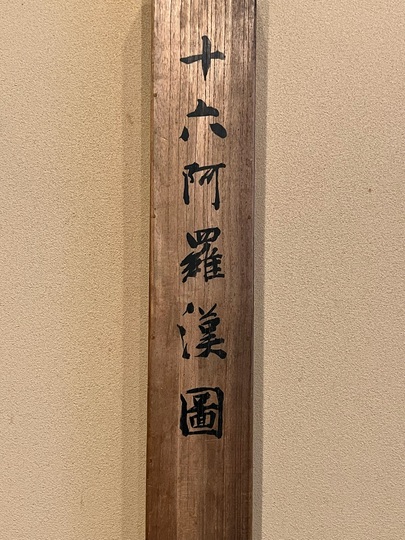 十六阿羅漢圖